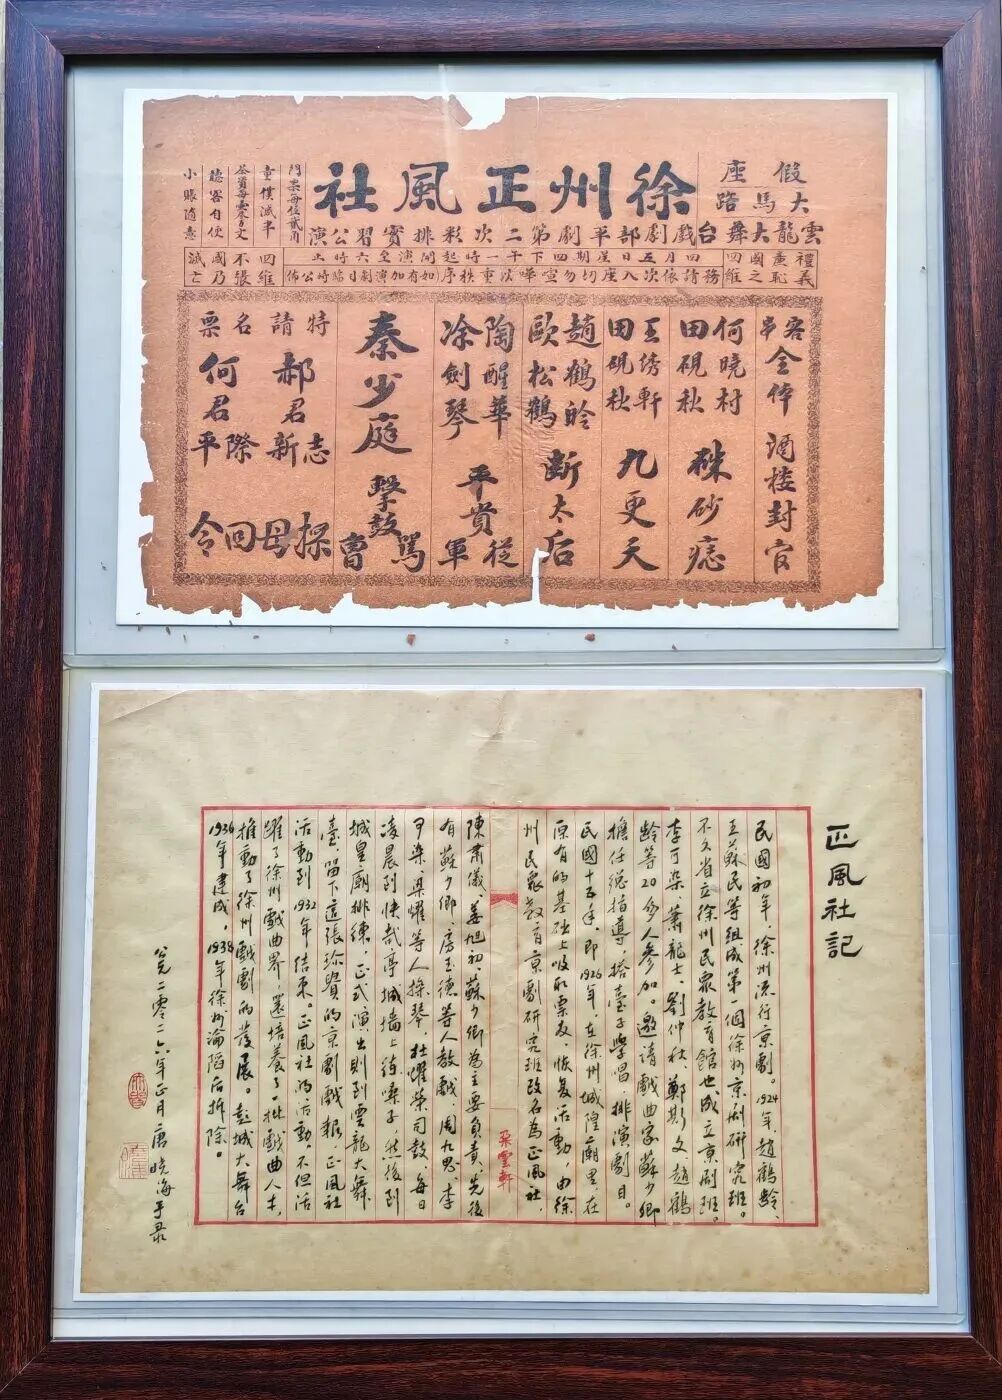 假座
大馬路
徐州正風社
門票每位貳角
童僕減半
茶資每壺零售文
聽客自便
小賬隨意
雲龍大舞台戲劇部平劇第二次彩排實習公演
禮義廉恥
國之四維
四維不張
國乃滅亡
四月五日星期四下午一時起開演至六時止
務請依次入座切勿喧嘩以重秩序如有加演劇目臨時公佈
客串
全体
酒楼封官
何曉村
田硯秋
硃砂痣
王滂軒
田硯秋
九更天
趙鶴齡
歐松鶴
斷太后
陶醒華
涂劍琴
平貴從軍
秦少庭
擊鼓罵曹
特請名票
郝君志新
何君際平
探母回令
正風社記
民國初年，徐州流行京劇。1924年，趙鶴齡、
王蘇民等組成第一個徐州京劇研究班。
不久省立徐州民眾教育館也成立京劇班。
李可染、蕭龍士、劉仲秋、鄭斯文、趙鶴
齡等20多人參加。邀請戲曲家蘇少卿
擔任總指導，搭臺子學唱、排演劇目。
民國十五年，即1926年，在徐州城隍廟里在
原有的基础上吸收票友，恢复活動，由徐
州民眾教育京劇研究班改名為正風社，
朵雲軒
陳肅儀、姜旭初、蘇少卿為主要負責，先後
有蘇少卿、房玉德等人教戲，周九思、李
尹染、渠耀等人操琴，杜耀荣司鼓、每日
凌晨到快哉亭城墙上练嗓子，然後到
城皇廟排练，正式演出則到雲龍大舞
臺，留下這張珍貴的京劇戲报。正風社
活動到1932年结束。正風社的活動，不但活
躍了徐州戲曲界，還培養了一批戲曲人才，
推動了徐州戲劇的發展。彭城大舞台
1934年建成，1938年徐州淪陷后拆除。
公元二零二六年正月唐曉海手录